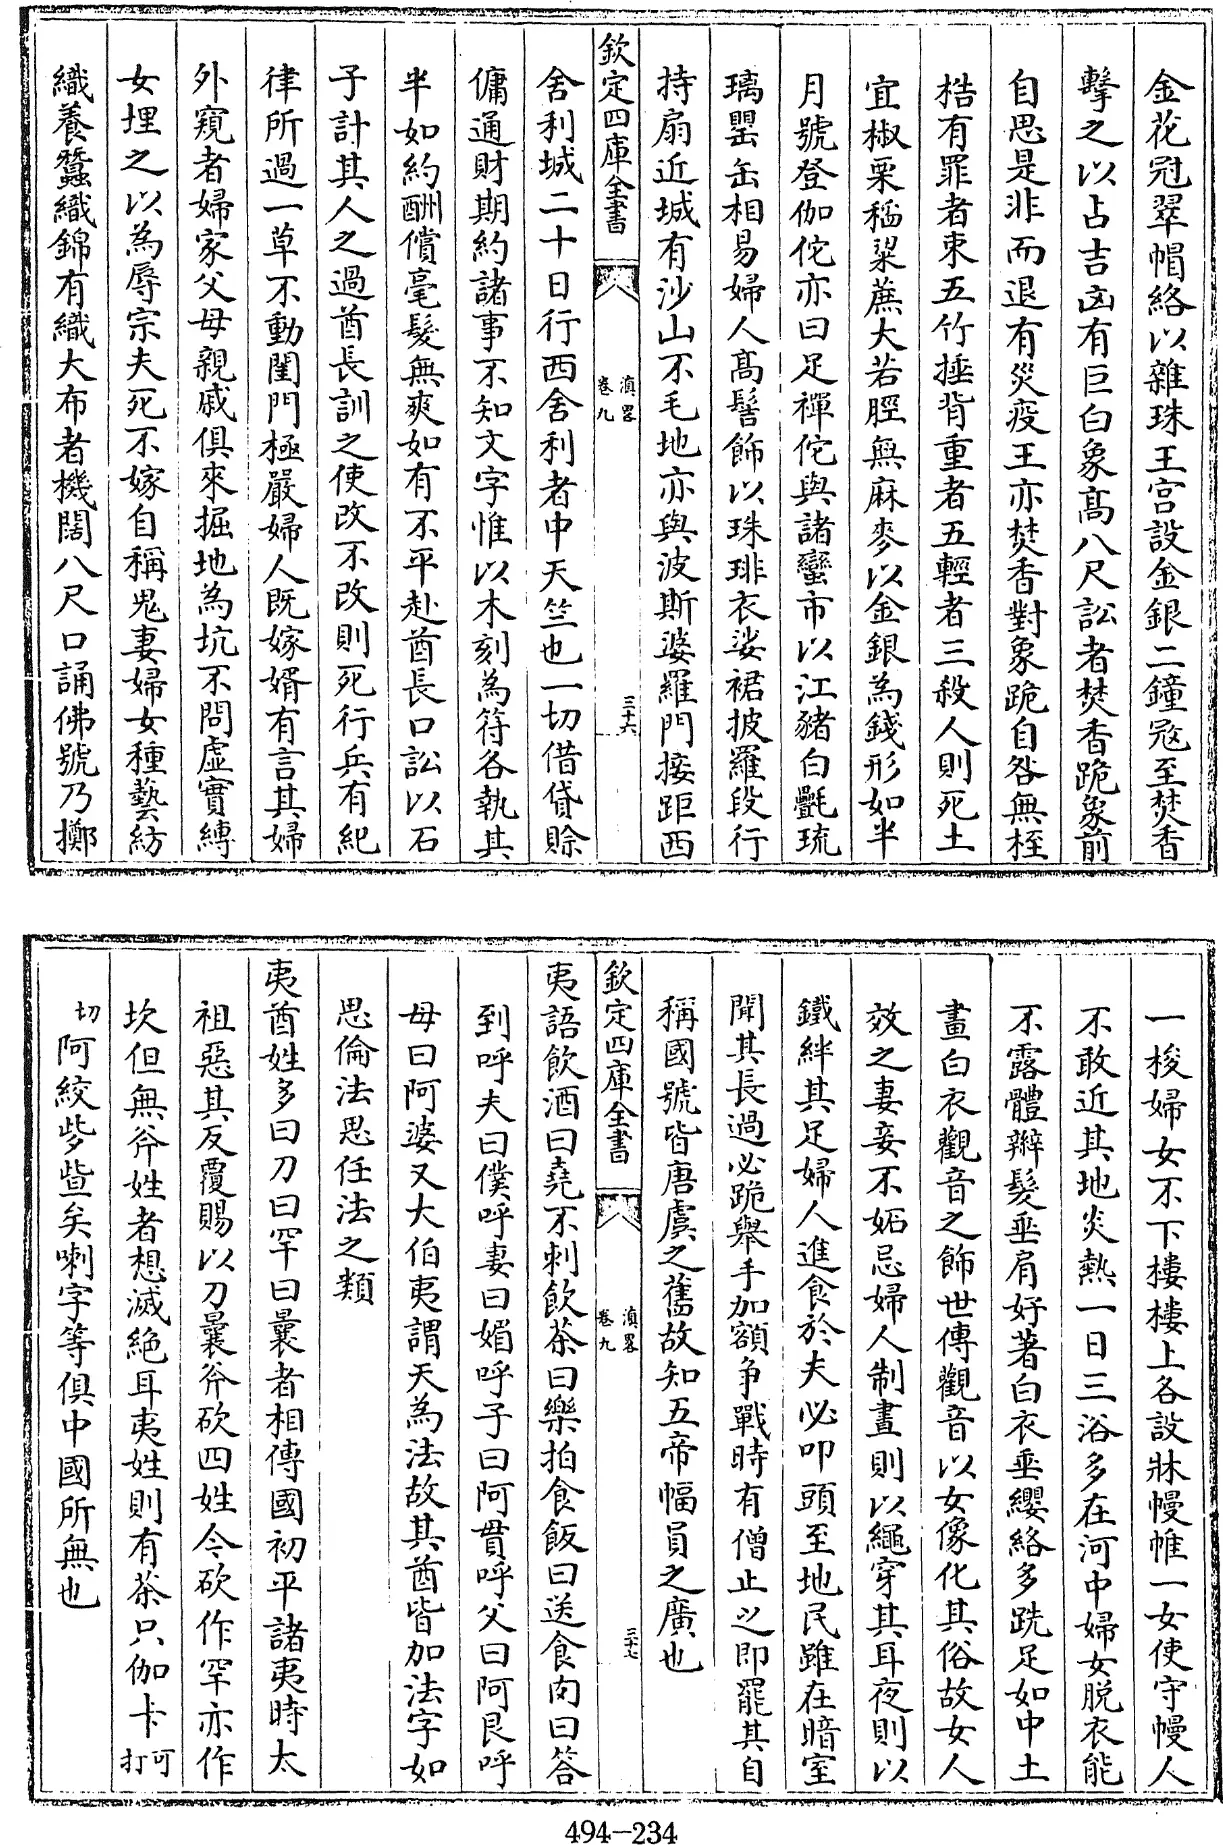 金花冠翠帽絡以雜珠王宮設金銀二鐘冦至焚香
擊之以占吉凶有巨白象髙八尺訟者焚香跪象前
自思是非而退有災疫王亦焚香對象跪自咎無桎
梏有罪者束五竹捶背重者五輕者三殺人則死土
宜椒粟稻粱蔗大若脛無麻麥以金銀為錢形如半
月號登伽佗亦曰足襌佗與諸蠻市以江豬白㲲琉
璃罌缶相易婦人髙髻飾以珠琲衣娑裙披羅段行
持扇近城有沙山不毛地亦與波斯婆羅門接距西
欽定四庫全書
滇畧
卷九
三十六
舍利城二十日行西舍利者中天竺也一切借貸賒
傭通財期約諸事不知文字惟以木刻為符各執其
半如約酬償毫髮無爽如有不平赴酋長口訟以石
子計其人之過酋長訓之使改不改則死行兵有紀
律所過一草不動閨門極嚴婦人既嫁婿有言其婦
外窺者婦家父母親戚俱來掘地為坑不問虛實縛
女埋之以為辱宗夫死不嫁自稱鬼妻婦女種藝紡
織養蠶織錦有織大布者機闊八尺口誦佛號乃擲
一梭婦女不下樓樓上各設牀幔帷一女使守幔人
不敢近其地炎熱一日三浴多在河中婦女脫衣能
不露體辮髮垂肩好著白衣垂纓絡多跣足如中土
畫白衣觀音之飾世傳觀音以女像化其俗故女人
效之妻妾不妬忌婦人制晝則以繩穿其耳夜則以
鐵絆其足婦人進食於夫必叩頭至地民雖在暗室
聞其長過必跪舉手加額爭戰時有僧止之即罷其自
稱國號皆唐虞之舊故知五帝幅員之廣也
欽定四庫全書
滇畧
卷九
三十七
夷語飲酒曰堯不刺飲茶曰樂拍食飯曰送食肉曰答
到呼夫曰僕呼妻曰媚呼子曰阿貫呼父曰阿艮呼
母曰阿婆又大伯夷謂天為法故其酋皆加法字如
思倫法思任法之類
夷酋姓多曰刀曰罕曰曩者相傳國初平諸夷時太
祖惡其反覆賜以刀曩斧砍四姓今砍作罕亦作
坎但無斧姓者想滅絶耳夷姓則有茶只伽卡可打
切阿絞歩㫮矣喇字等俱中國所無也
494-234